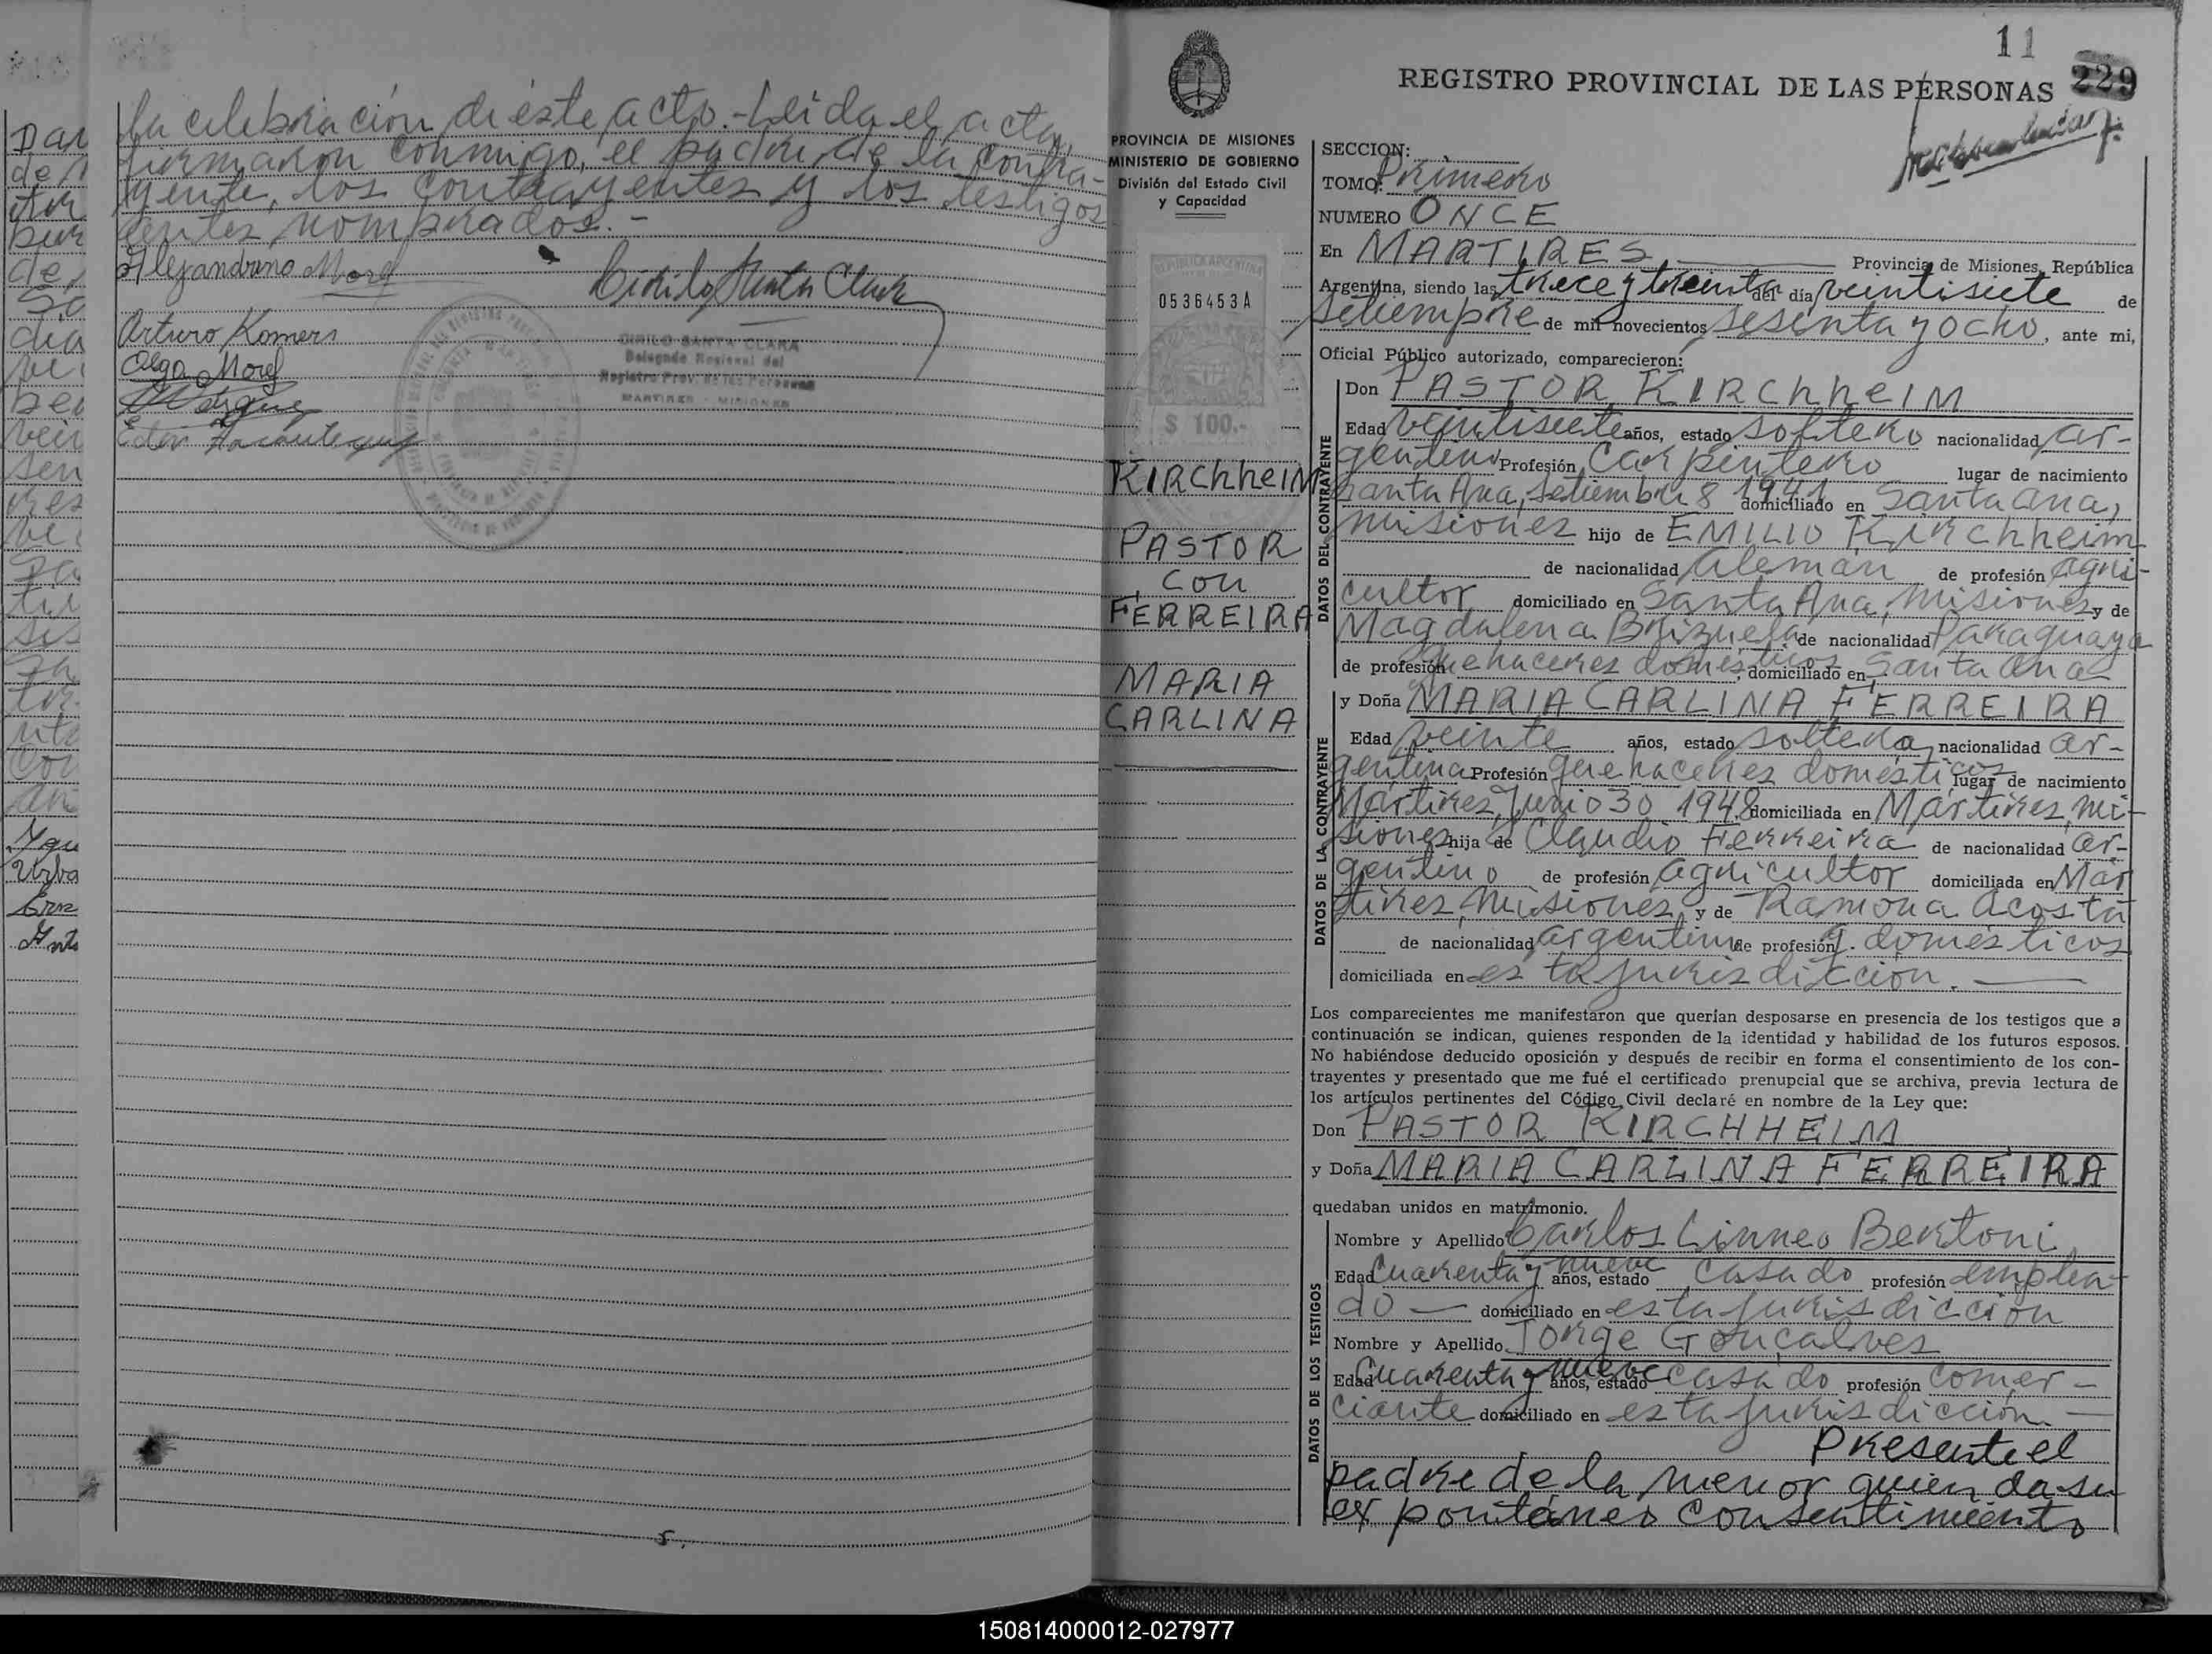 la celebración de éste acto.- Leída el acta,
firmaron conmigo, el padre de la contra-
yente, los contrayentes y los testigos
antes nombrados.-
Alejandrino Morel
Cirilo Santa Clara
Arturo Komers
Olga Morel
CIRILO SANTA CLARA
Delegado Regional del
Registro Prov. de las Personas
MARTIRES - MISIONES
11
REGISTRO PROVINCIAL DE LAS PERSONAS 229
PROVINCIA DE MISIONES
MINISTERIO DE GOBIERNO
División del Estado Civil
y Capacidad
REPUBLICA ARGENTINA
0536453A
$ 100.-
KIRChheIM
PASTOR
con
FERREIRA
MARIA
CARLINA
SECCION:
TOMO: Primero
NUMERO ONCE
En MARTIRES, Provincia de Misiones, República
Argentina, siendo las trece y treinta del día veintisiete de
Setiembre de mil novecientos sesenta y ocho, ante mi,
Oficial Público autorizado, comparecieron:
DATOS DEL CONTRAYENTE
Don PASTOR KIRChheIM
Edad veintisiete años, estado soltero nacionalidad ar-
gentino Profesión Carpintero lugar de nacimiento
Santa Ana, Setiembre 8 1941 domiciliado en Santa Ana,
Misiones hijo de EMILIO Kirchheim
de nacionalidad Alemán de profesión agri-
cultor domiciliado en Santa Ana, Misiones y de
Magdalena Brizuela de nacionalidad Paraguaya
de profesión quehaceres domésticos domiciliado en Santa Ana
DATOS DE LA CONTRAYENTE
y Doña MARIA CARLINA FERREIRA
Edad veinte años, estado soltera nacionalidad ar-
gentina Profesión quehaceres domésticos lugar de nacimiento
Mártires, Junio 30 1948 domiciliada en Mártires, Mi-
siones hija de Claudio Ferreira de nacionalidad ar-
gentino de profesión agricultor domiciliada en Már
tires, Misiones y de Ramona Acosta
de nacionalidad argentina de profesión q. domésticos
domiciliada en esta jurisdicción.
Los comparecientes me manifestaron que querían desposarse en presencia de los testigos que a
continuación se indican, quienes responden de la identidad y habilidad de los futuros esposos.
No habiéndose deducido oposición y después de recibir en forma el consentimiento de los con-
trayentes y presentado que me fué el certificado prenupcial que se archiva, previa lectura de
los artículos pertinentes del Código Civil declaré en nombre de la Ley que:
Don PASTOR KIRCHHEIM
y Doña MARIA CARLINA FERREIRA
quedaban unidos en matrimonio.
DATOS DE LOS TESTIGOS
Nombre y Apellido Carlos Linneo Bertoni
Edad Cuarenta y nueve años, estado casado profesión emplea-
do - domiciliado en esta jurisdicción
Nombre y Apellido Jorge Gonçalves
Edad Cuarenta y nueve años, estado casado profesión comer-
ciante domiciliado en esta jurisdicción. -
Presente el
padre de la menor quien da su
expontáneo consentimiento
150814000012-027977